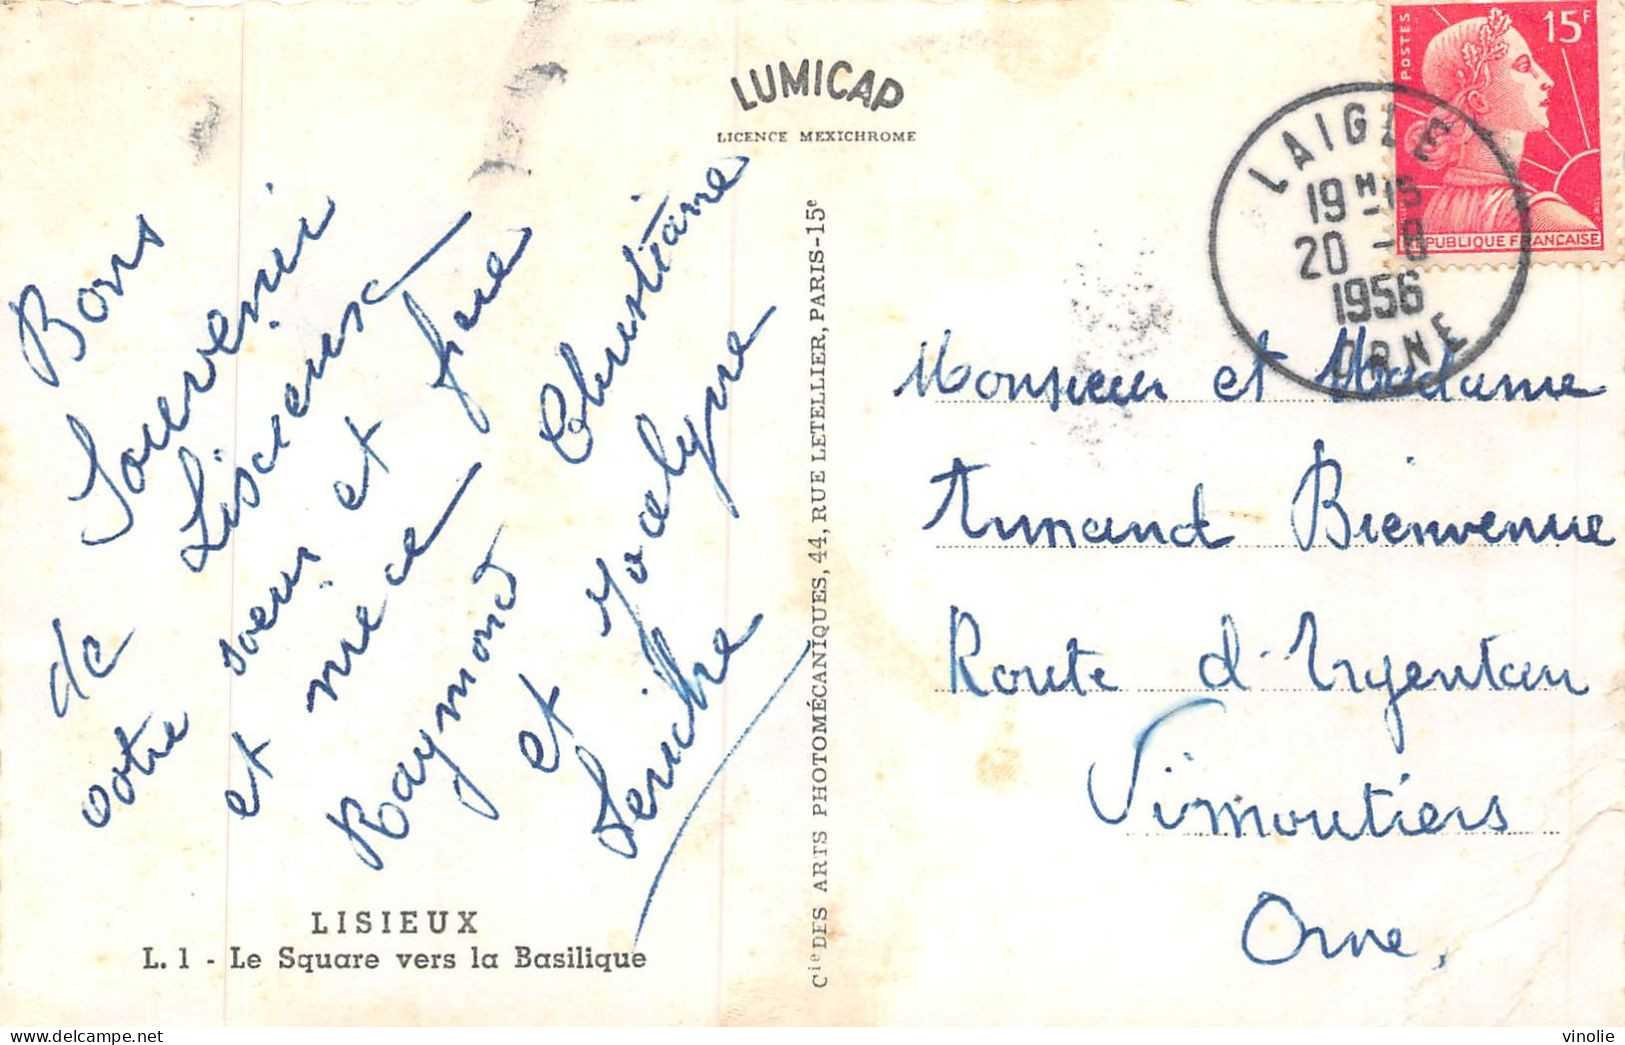 LUMICAP
LICENCE MEXICHROME
Bons
Souvenir
de Lisieux
votre soeur et frere
et niece
Raymond Christiane
et Jocelyne
LISIEUX
L. 1 - Le Square vers la Basilique
Cie DES ARTS PHOTOMÉCANIQUES, 44, RUE LETELLIER, PARIS-15e
POSTES
15F
REPUBLIQUE FRANCAISE
LAIGLE
19H15
20 -8
1956
ORNE
Monsieur et Madame
Armand Bienvenue
Route d'Argentan
Vimoutiers
Orne,
vinolie